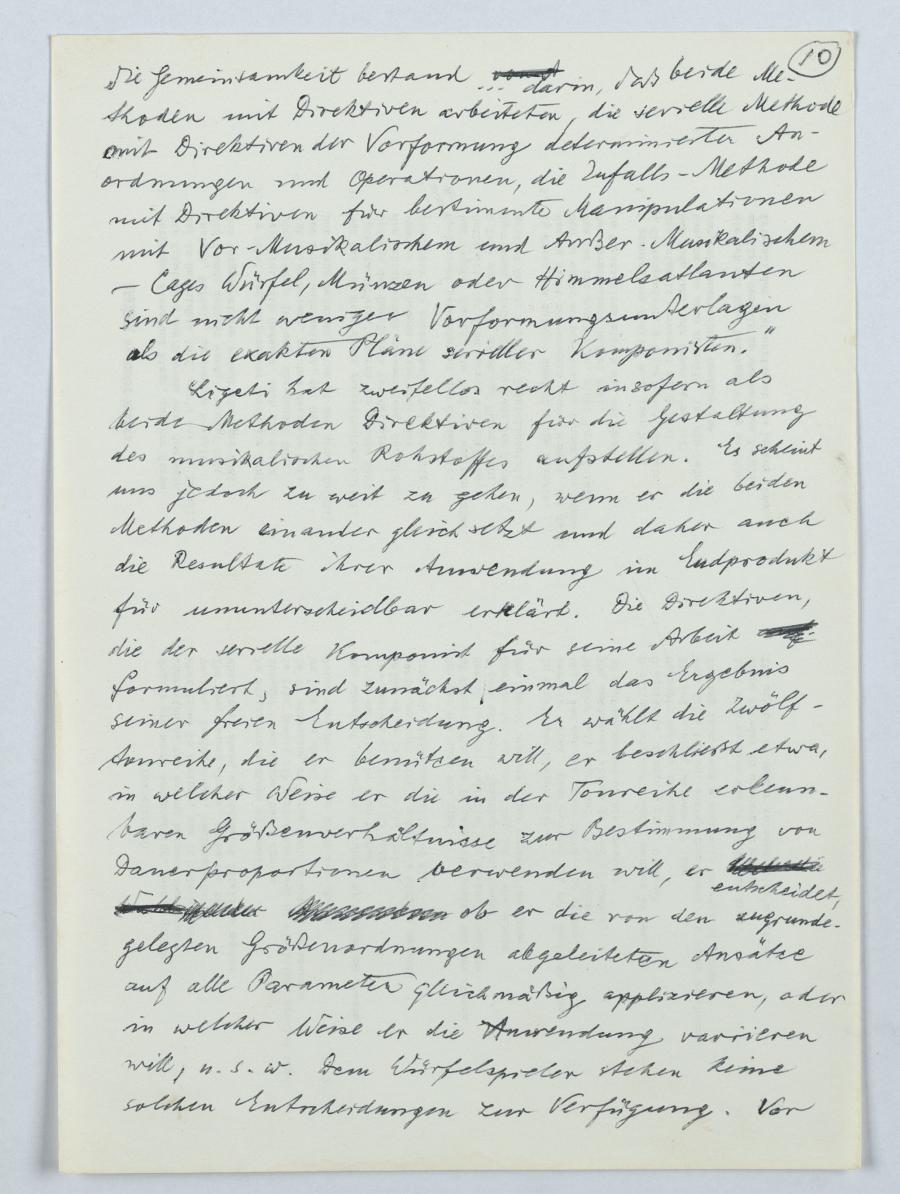 10
Die Gemeinsamkeit bestand ... darin, daß beide Me-
thoden mit Direktiven arbeiteten, die serielle Methode
mit Direktiven der Vorformung determinierter An-
ordnungen und Operationen, die Zufalls-Methode
mit Direktiven für bestimmte Manipulationen
mit Vor-Musikalischem und Außer-Musikalischem
— Cages Würfel, Münzen oder Himmelsatlanten
sind nicht weniger Vorformungsunterlagen
als die exakten Pläne serieller Komponisten."
Ligeti hat zweifellos recht insofern als
beide Methoden Direktiven für die Gestaltung
des musikalischen Rohstoffes aufstellen. Es scheint
uns jedoch zu weit zu gehen, wenn er die beiden
Methoden einander gleich setzt und daher auch
die Resultate ihrer Anwendung im Endprodukt
für ununterscheidbar erklärt. Die Direktiven,
die der serielle Komponist für seine Arbeit
formuliert, sind zunächst einmal das Ergebnis
seiner freien Entscheidung. Er wählt die Zwölf-
tonreihe, die er benützen will, er beschließt etwa,
in welcher Weise er die in der Tonreihe erkenn-
baren Größenverhältnisse zur Bestimmung von
Dauerproportionen verwenden will, er
entscheidet,
ob er die von den zugrunde-
gelegten Größenordnungen abgeleiteten Ansätze
auf alle Parameter gleichmäßig applizieren, oder
in welcher Weise er die Anwendung variieren
will, u. s. w. Dem Würfelspieler stehen keine
solchen Entscheidungen zur Verfügung. Vor